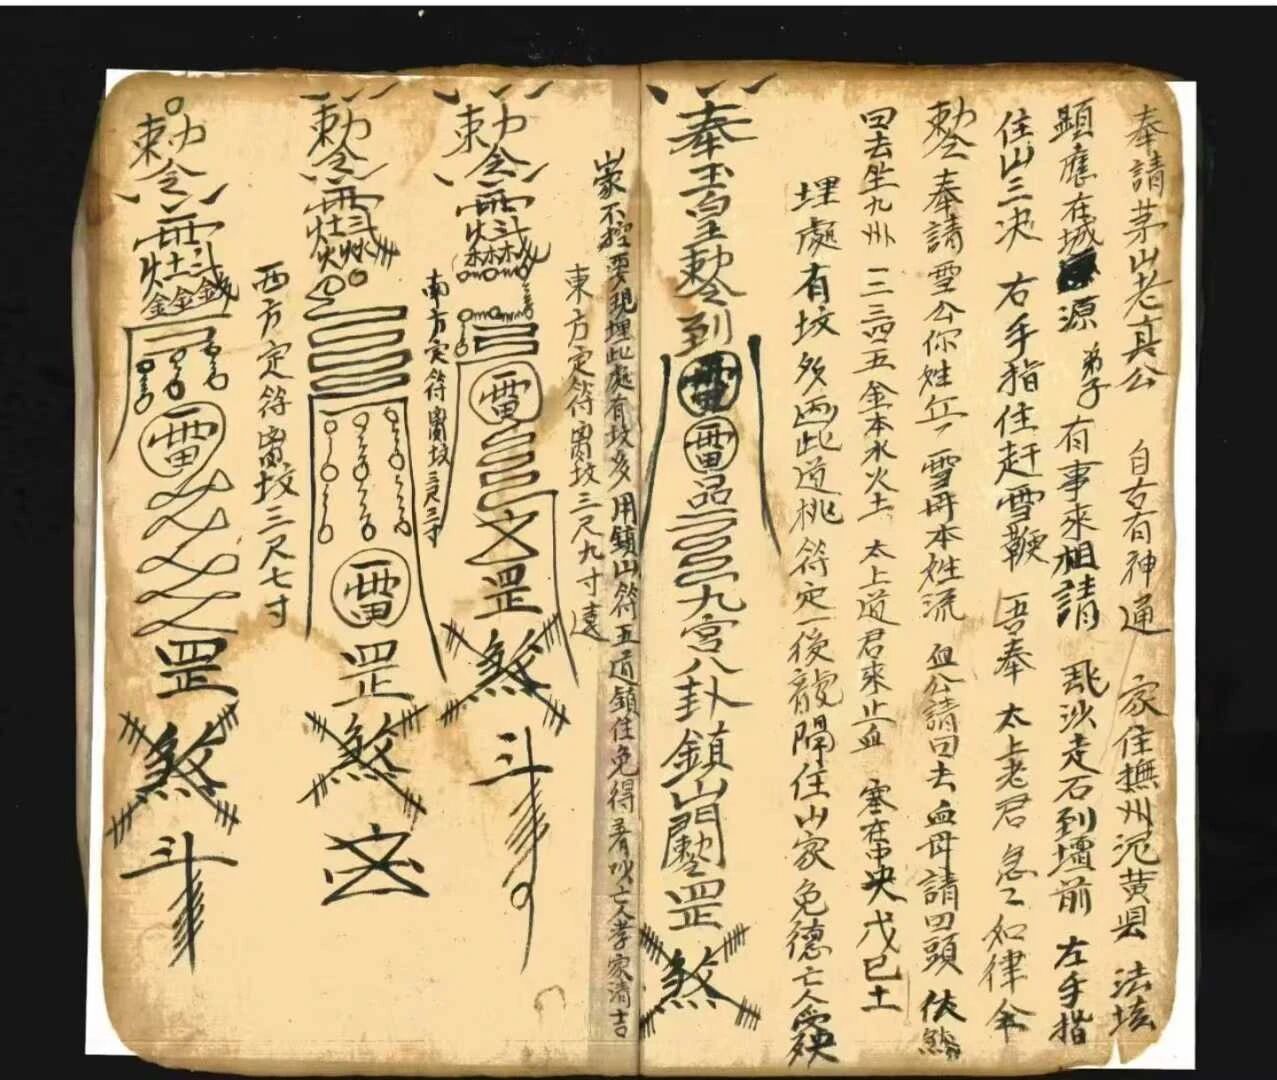 奉請茅山老真公 自古有神通 家住撫州泥黄县 法坛
顕應在城 源 弟子有事來祖請 飛沙走石到壇前 左手指
住山三决 右手指住赶雪鞭 吾奉 太上老君 急ミ如律令
勅令 奉請雪公你姓丘 雪母本姓流 血公請回去血母請回頭
回去坐九州 一二三四五金本水火土 太上道君來止血 塞在中央戊己土
埋處有坟多 此道桃符定一後龍隔住山家免德亡人殃
奉玉皇勅令到
雷
雷
品
九宮八卦鎮山
罡
煞
不 要現埋此處有坟多用鎮山符五道鎮住免得 亡人孝家清吉
東方定符 坟三尺九寸遠
勅令
雷
罡
煞
斗
南方定符 坟三尺三寸
勅令
雷
罡
煞
西方定符 坟三尺七寸
勅令
金金金
雷
罡
煞
斗